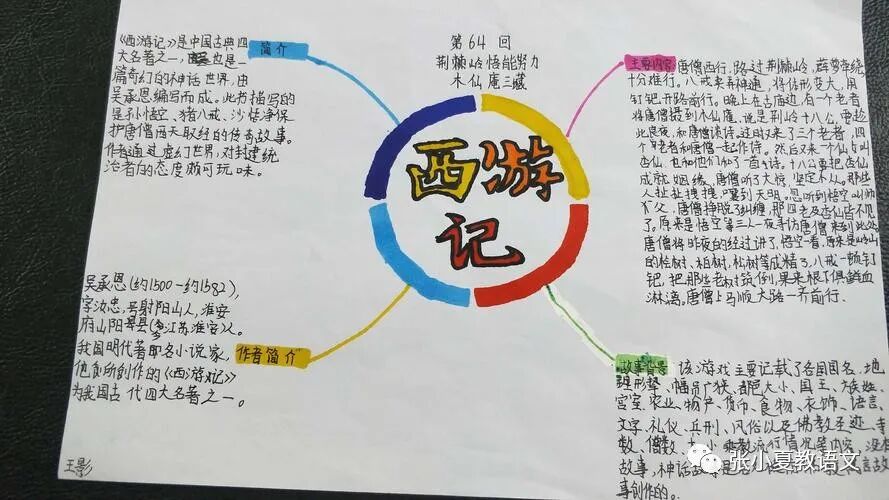 第64回
荆棘岭悟能努力
木仙庵三藏
西游
记
简介
《西游记》是中国古典四
大名著之一,也是一
篇奇幻的神话世界,由
吴承恩编写而成。此书描写的
是孙悟空、猪八戒、沙僧净保
护唐僧西天取经的传奇故事。
作者通过虚幻世界,对封建统
治者的态度颇可玩味。
主要内容
唐僧西行,路过荆棘岭,薜萝牵绕,
十分难行。八戒卖弄神通,将估形变大,用
钉钯开路前行。晚上在古庙边,有一个老者
将唐僧摄到木仙庵,说是荆岭十八公,要趁
此良夜,和唐僧谈诗。这时又来了三个老者,四
个老者和唐僧一起作诗。然后又来一个仙女叫
杏仙,也和他们和了一首诗。十八公要把杏仙
成就姻缘,唐僧听了大惊,坚定不从。那些
人扯扯拽拽,嚷到天明。忽听到悟空叫师
父,唐僧挣脱了纠缠,那四老及杏仙皆不见
了。原来是悟空等三人一夜寻访唐僧,来到此处
唐僧将昨夜的经过讲了,悟空一看,原来是
的桧树、柏树、松树等成精了,八戒一顿钉
钯,把那些老树筑倒,果来根下俱鲜血
淋漓,唐僧上马顺大路一齐前行.
作者简介
吴承恩(约1500-约1582),
字汝忠,号射阳山人,淮安
府山阳县(今江苏淮安)人。
我国明代著名小说家,
他所创作的《西游记》
为我国古代四大名著之一。
故事背景
该游戏主要记载了各国国名、地
理形势、幅员广狭、都邑大小、国王、族姓、
宫室、农业、物产、货币、食物、衣饰、语言、
文字、礼仪、兵刑、风俗以及佛教圣迹、寺
数、僧数、大小乘教流行情况等内容,没有
故事,神话故
事创作的。
王影
张小夏教语文